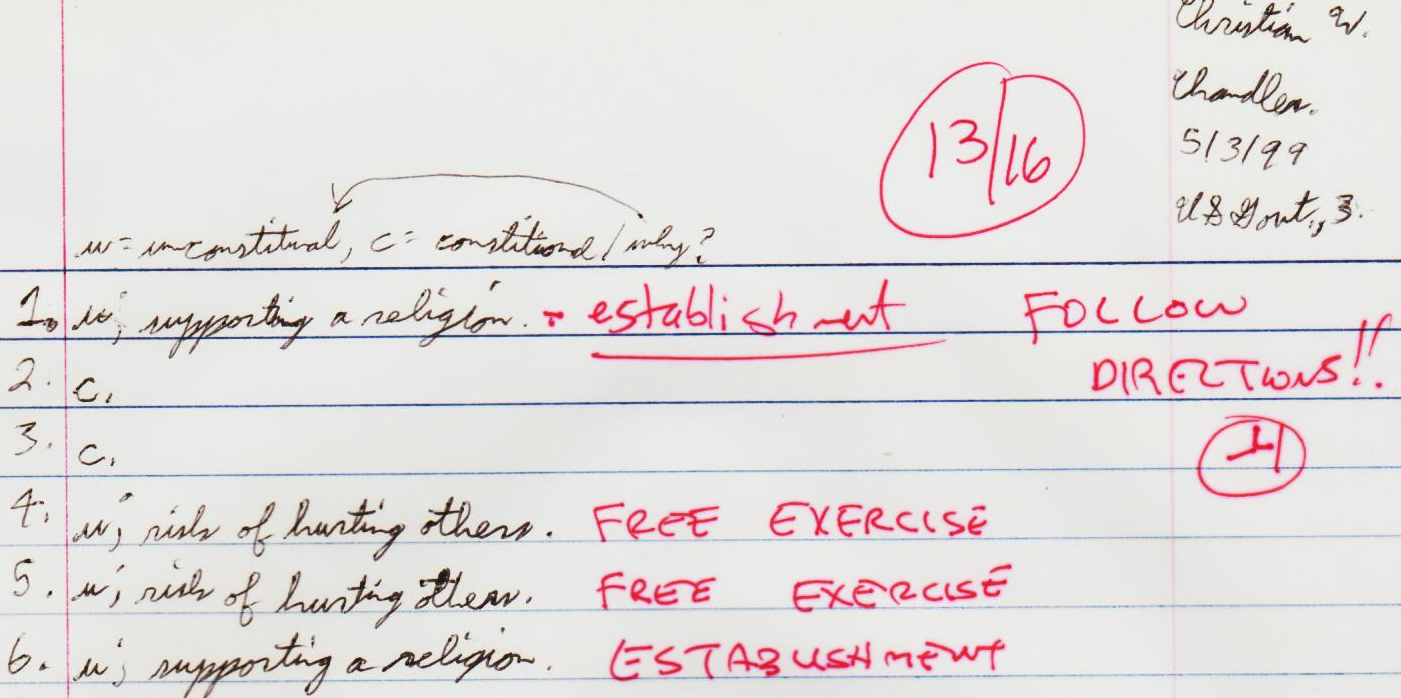 Christian W.
Chandler.
5/3/99
US Govt., 3.
13/16
u = unconstitual, c = constitional / why?
1. u; supporting a religion. - establishment FOLLOW
2. c. DIRECTIONS!!
3. c. -1
4. u; risk of hurting others. FREE EXERCISE
5. u; risk of hurting others. FREE EXERCISE
6. u; supporting a religion. ESTABLISHMENT